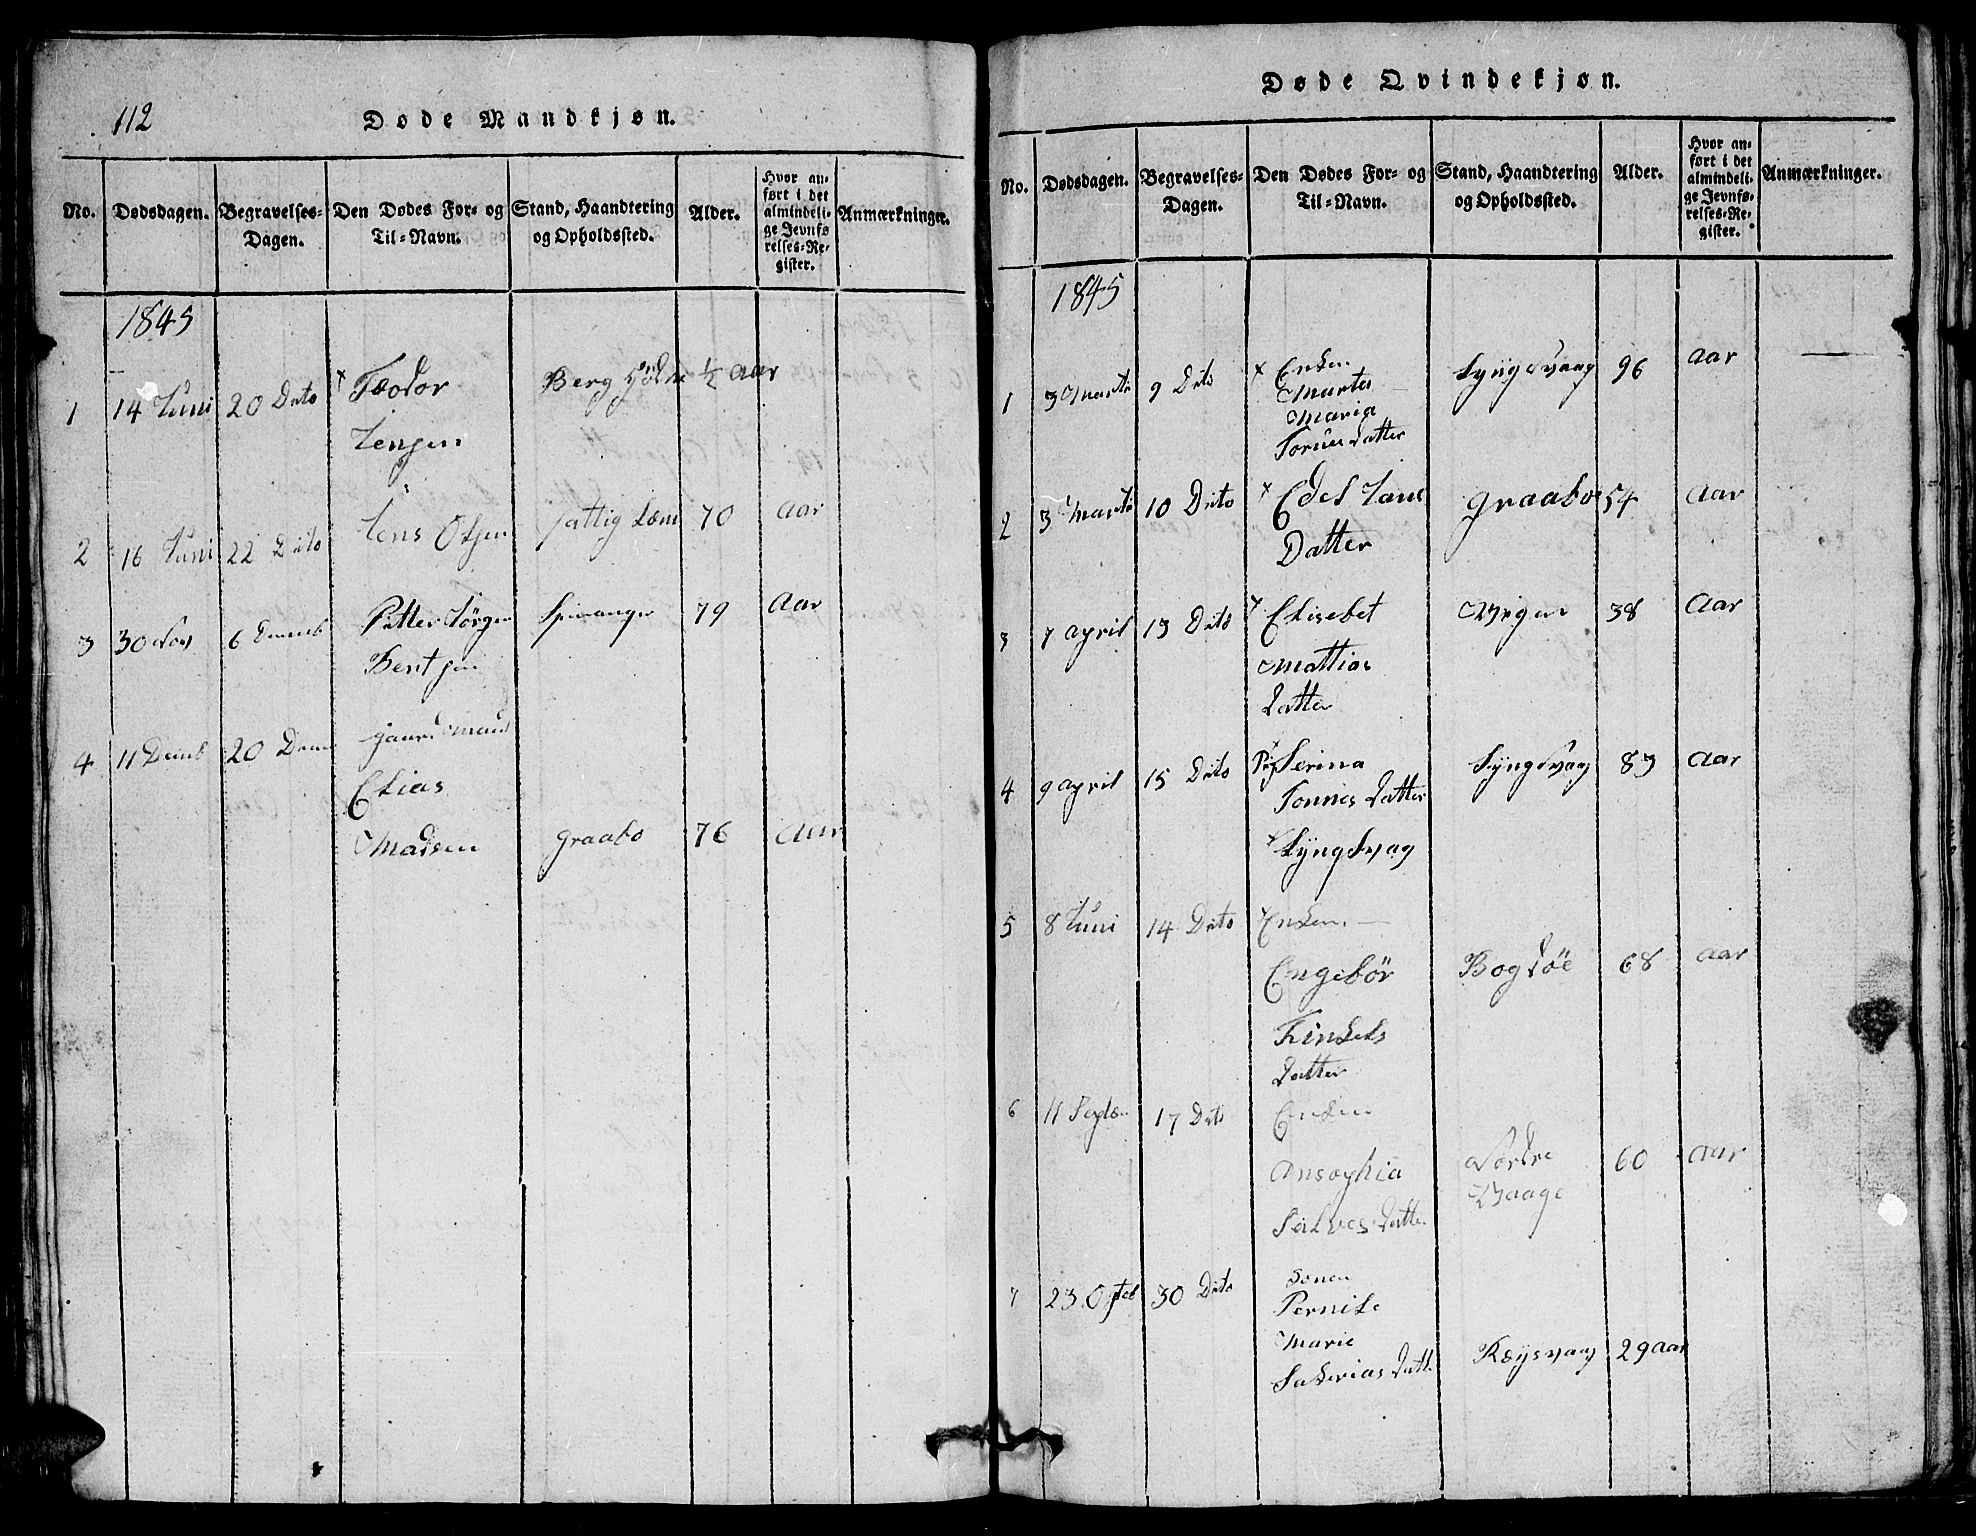 112
Døde Mandkjøn.
No. Dødsdagen. Begravelses-Dagen. Den Dødes For- og Til-Navn. Stand, Haandtering og Opholdssted. Alder. Hvor anført i det almindelige Jevnførelses-Register. Anmærkninger.
1845
1 14 Juni 20 Dito Tæodor Berg ½ aar
Jensen
2 16 Juni 22 Dito Jens Olsen fattig Lem 70 aar
3 30 Nov 6 Decemb Petter Jörgen Spinanger 79 aar
Bentsen
4 11 Decmb 20 Decm gaardmand
Elias
Madsen graabo 76 aar
Døde Qvindekjøn.
No. Dødsdagen. Begravelses-Dagen. Den Dødes For- og Til-Navn. Stand, Haandtering og Opholdssted. Alder. Hvor anført i det almindelige Jevnførelses-Register. Anmærkninger.
1845
1 3 Marti 9 Dito Enken Lyngsvaag 96 aar
Marta
Maria
datter
2 3 Marti 10 Dito Edel Jans graaboe 54 aar
Datter
3 7 april 13 Dito Elisebet 38 aar
Mattias
datter
4 9 april 15 Dito Serina Lyngsvaag 83 aar
Tonnes datter
Lyngsvag
5 8 Juni 14 Dito Enken
Engebör Bogsöe 68 aar
datter
6 11 Septem 17 Dito Enken
Ansophia Nordre 60 aar
Salves datter Vaage
7 23 Octob 30 Dito konen
Pernile
Marie
Sakerias datt Ræjsvaag 29 aar